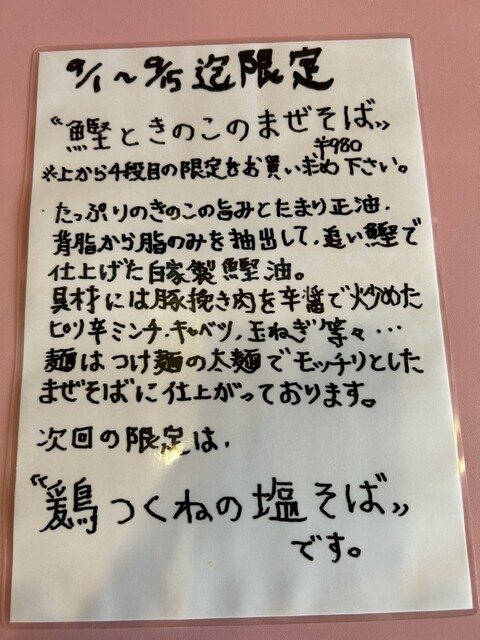 9/1～9/15迄限定
〝鰹ときのこのまぜそば〟
¥980
※上から4段目の限定をお買い求め下さい。
たっぷりのきのこの旨みとたまり正油、
背脂から脂のみを抽出して、追い鰹で
仕上げた自家製鰹油。
具材には豚挽き肉を辛醤で炒めた
ピリ辛ミンチ、キャベツ、玉ねぎ等々…
麺はつけ麺の太麺でモッチリとした
まぜそばに仕上がっております。
次回の限定は、
〝鶏つくねの塩そば〟
です。